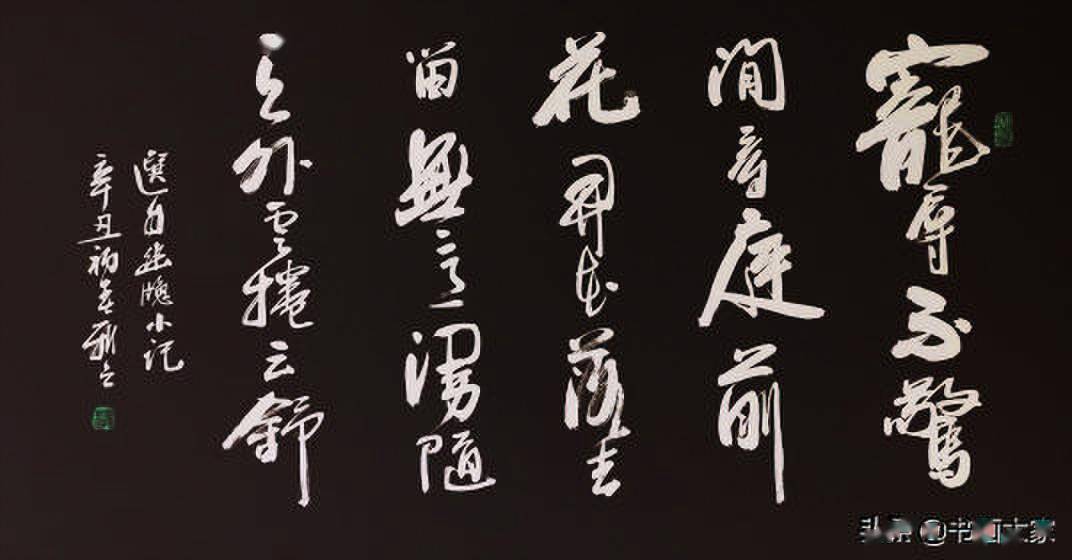 寵辱不驚
閒看庭前
花開花落去
留無意漫隨
天外雲捲云舒
選自幽窗小記
辛丑初
头条 @书画大家